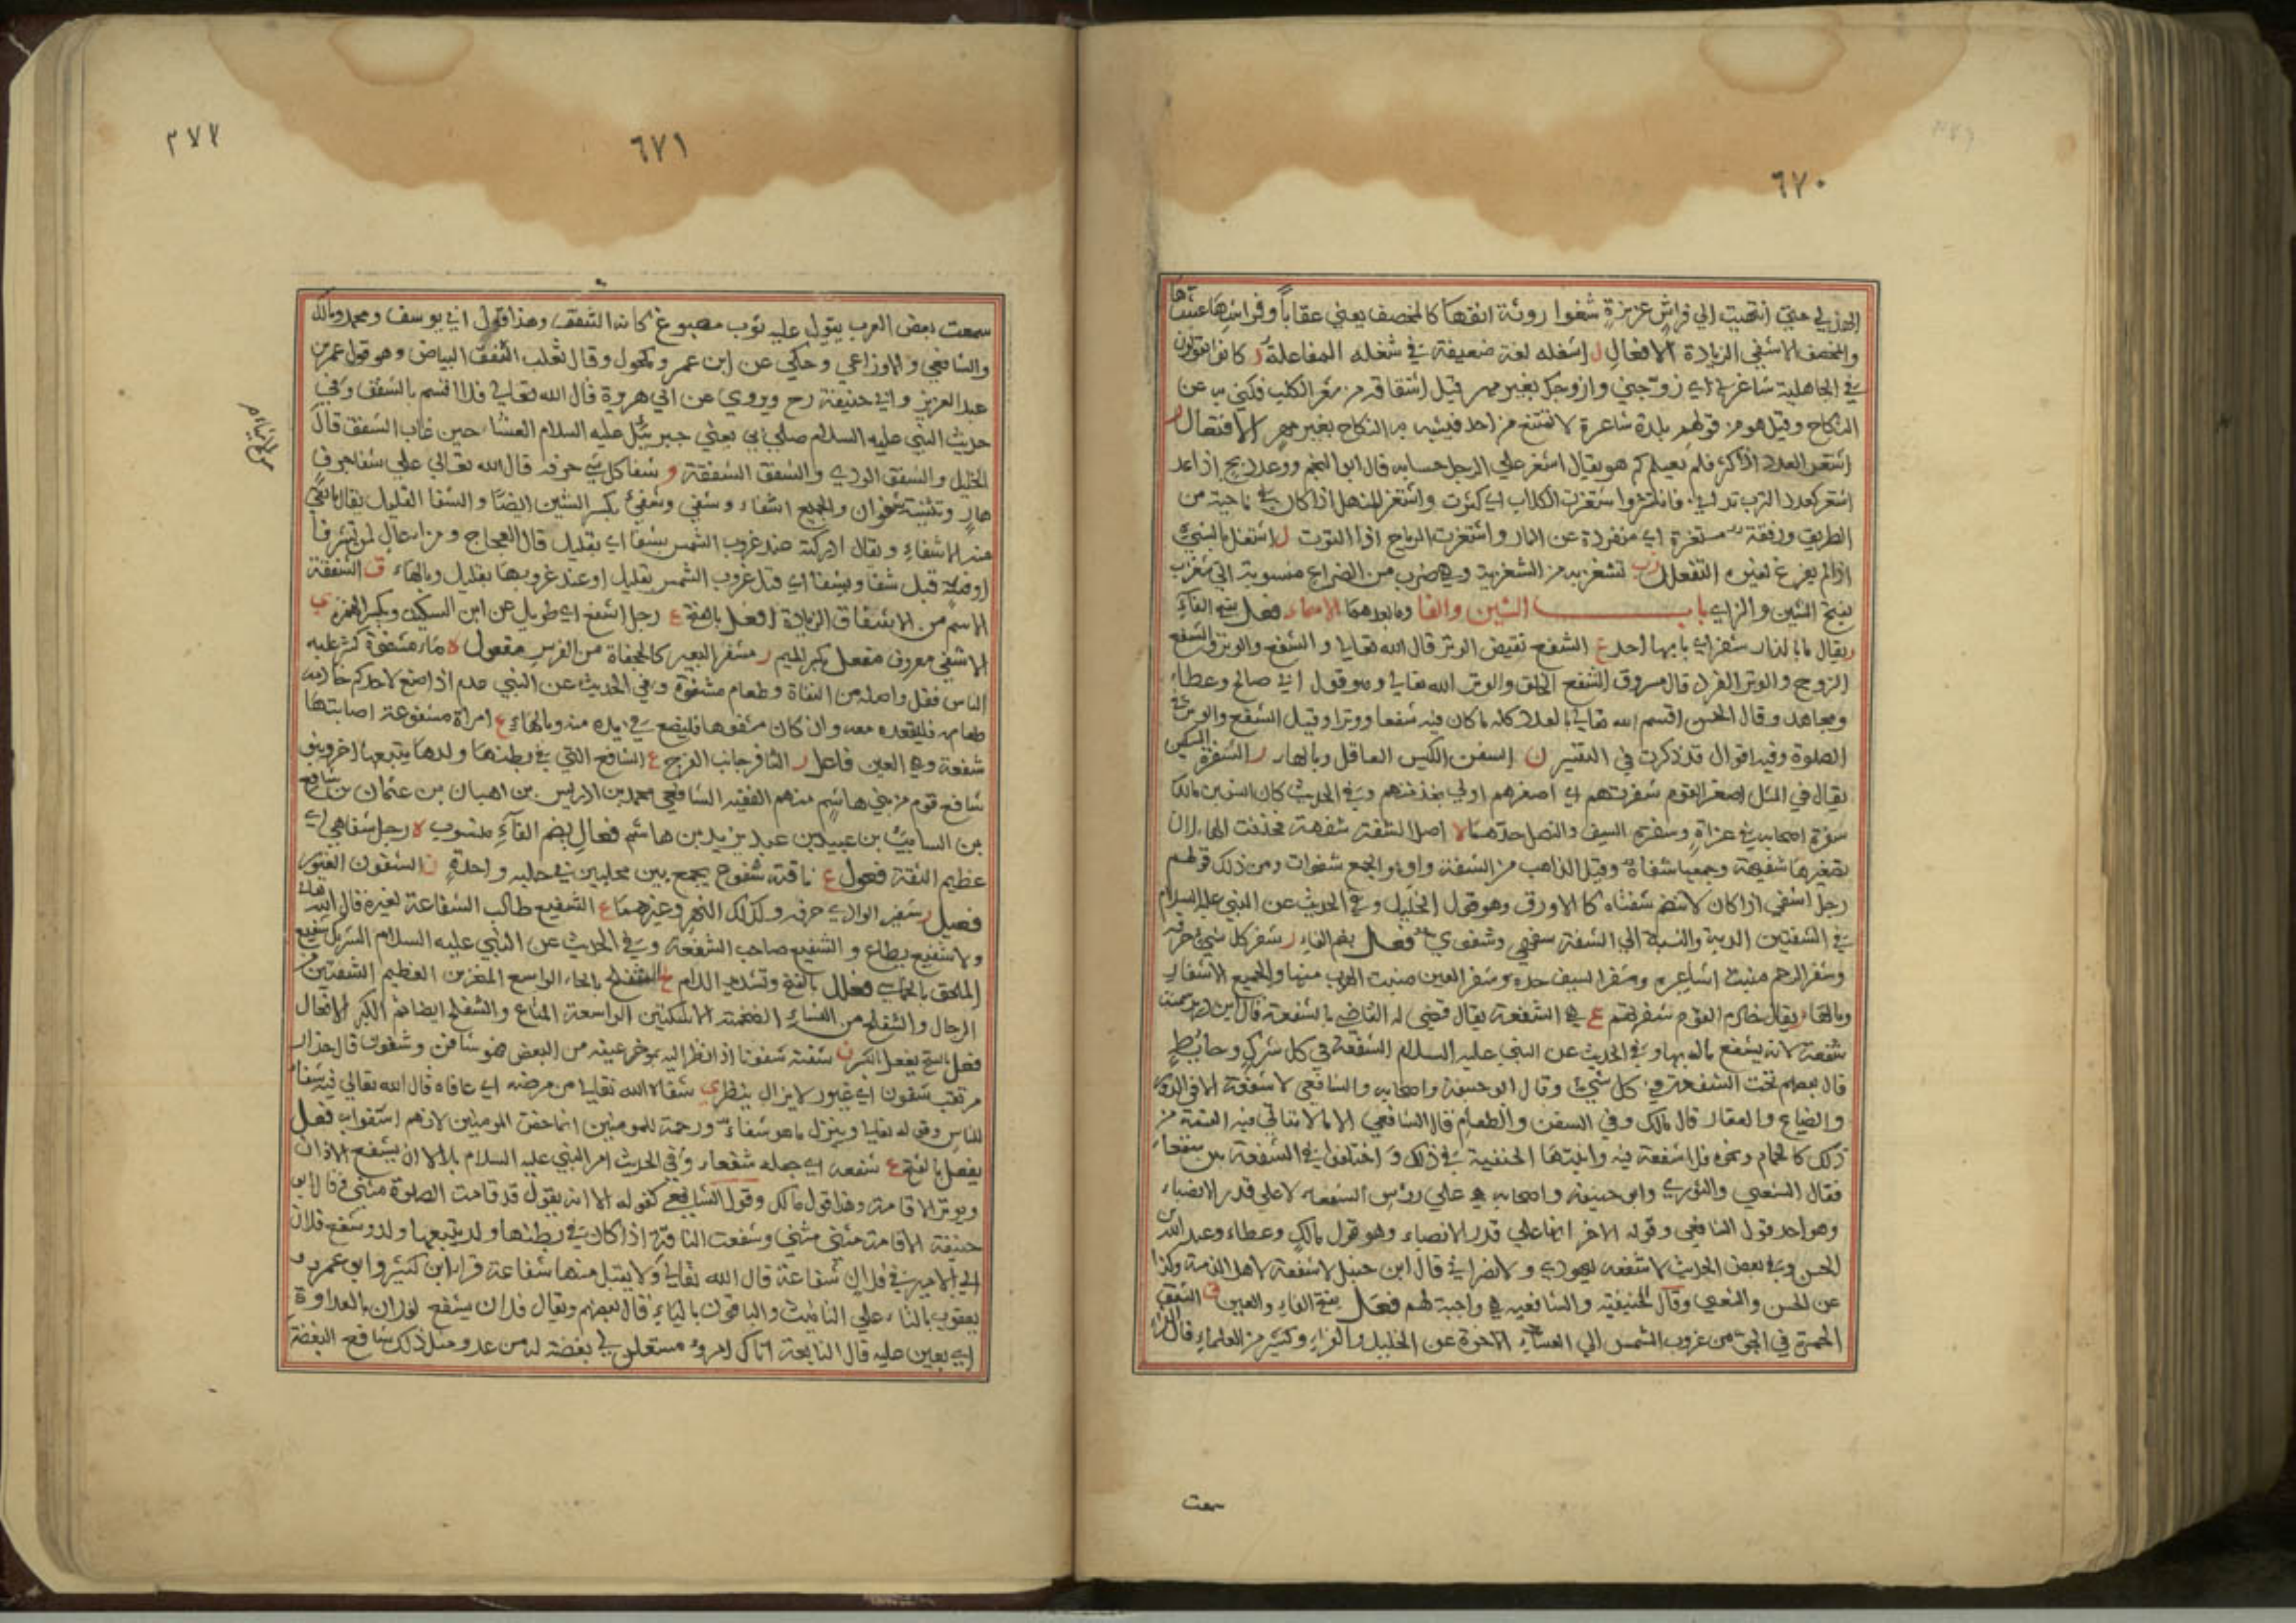 ٦٧٠
الهذلي حتى انتهيت الي فراش عزيزة شغوا روثة انفها كالمخصف يعني عقاباً وفراشها عشها
والمخصف الاشفي الزيادة الافعال ل اشغله لغة ضعيفة في شغله المفاعلة ر كانوا يقولون
في الجاهلية شاغرني اي زوجني وازوجك بغير مهر قيل اشتقاقه من شغر الكلب فكني به عن
النكاح وقيل هو من قولهم بلدة شاغرة لا تمتنع من احد فيشبه به النكاح بغير مهر الافتعال ر
اشتغر العدد اذا كثر فلم يعلم كم هو يقال اشتغر علي الرجل حسابه قال ابو النجم وعدد بخ اذا عد
اشتغر كعدد الترب واشتغرت الكلاب اي كثرت واشتغر المنهل اذا كان في ناحية من
الطريق ورفقة مشتغرة اي منفردة عن المار واشتغرت الرياح اذا التوت ل اشتغل بالشيء
اذا لم يفرغ لغيره التفعلل تشغزبه من الشغزبية وهي ضرب من الصراع منسوبة الي شغزب
بفتح الشين والزاي باب الشين والفا وما بعدهما الاسماء فعل بفتح الفاء
ر يقال ما بالدار شفر اي ما بها احد ع الشفع نقيض الوتر قال الله تعالي والشفع والوتر والشفع
الزوج والوتر الفرد قال مسروق الشفع الخلق والوتر الله تعالي وهو قول ابي صالح وعطاء
ومجاهد وقال الحسن اقسم الله تعالي بالعدد كله ما كان فيه شفعا ووترا وقيل الشفع والوتر في
الصلوة وفيه اقوال قد ذكرت في التفسير ن الشفن الكيس العاقل وبالهاء ر الشفرة السكين
يقال في المثل اصغر القوم شفرتهم اي اصغرهم اولي بخدمتهم وفي الحديث كان انس بن مالك
شفرة اصحابه في غزاة وشفرة السيف والنصل حدهما ه اصل الشفة شفهة فحذفت الهاء لان
تصغيرها شفيهة وجمعها شفاه وقيل الذاهب من الشفة واو والجمع شفوات ومن ذلك قولهم
رجل اشفي اذا كان لا تنضم شفتاه كالاورق وهو قول الخليل وفي الحديث عن النبي عليه السلام
في الشفتين الدية والنسبة الي الشفة شفهي وشفوي فعل بضم الفاء ر شفر كل شيء حرفه
وشفر الرحم وشفر السيف حده وشفر العين منبت الهدب منها والجميع الاشفار
وبالهاء ع هي الشفعة يقال قضي له القاضي بالشفعة قال ابن دريد سميت
شفعة لانه يشفع ماله بها وفي الحديث عن النبي عليه السلام الشفعة في كل شرك وحائط
قال بعضهم تحت الشفعة في كل شيء وقال ابو حنيفة واصحابه والشافعي لا شفعة الا في الدور
والضياع والعقار قال مالك وفي السفن والطعام قال الشافعي الا ما لا يتاتي فيه القسمة من
ذلك كالحمام ونحوه فلا شفعة فيه واثبتها الحنفية في ذلك واختلفوا في الشفعة بين شفعاء
فقال الشعبي والثوري وابو حنيفة واصحابه هي علي رؤس الشفعاء لا علي قدر الانصباء
وهو احد قول الشافعي وقوله الاخر انها علي قدر الانصباء وهو قول مالك وعطاء وعبد الله بن
الحسن وفي بعض الحديث لا شفعة ليهودي ولا نصراني قال ابن حنبل لا شفعة لاهل الذمة وكذا
عن الحسن والشعبي وقال الحنفية والشافعية هي واجبة لهم فعل بفتح الفاء والعين ق الشفق
الحمرة في الجو من غروب الشمس الي العشاء الاخرة عن الخليل والفراء وكثير من العلماء قال الفراء
سمعت
٦٧١
٢٧٧
سمعت بعض العرب يقول عليه ثوب مصبوغ كانه الشفق وهذا قول ابي يوسف ومحمد ومالك
والشافعي والاوزاعي وحكي عن ابن عمر ومكحول وقال ثعلب الشفق البياض وهو قول عمر بن
عبد العزيز وابي حنيفة رح ويروي عن ابي هريرة قال الله تعالي فلا اقسم بالشفق وفي
حديث النبي عليه السلام صلي بي يعني جبرئيل عليه السلام العشاء حين غاب الشفق قال
الخليل والشفق الردي والشفق الشفقة و شفا كل شي حرفه قال الله تعالي علي شفا جرف
هار وتثنيته شفوان والجميع اشفاء وشفي وشفي بكسر الشين ايضا والشفا القليل يقال ما بقي
منه الا شفاء ويقال ادركته عند غروب الشمس بشفا اي بقليل قال العجاج ومربا عال لمن تشرفا
اوفيته قبل شفا وبشفا اي قبل غروب الشمس بقليل او عند غروبها بقليل وبالهاء ق الشفقة
الاسم من الاشفاق الزيادة افعل بالفتح ع رجل اشفع اي طويل عن ابن السكيت وبكسر الهمزة ي
الاشفي معروف مفعل بكسر الميم ر مشفر البعير كالجحفلة من الفرس مفعول ه ماء مشفوه كثر عليه
الناس فقل واصله من الشفاه وطعام مشفوه وفي الحديث عن النبي علم اذا صنع لاحدكم خادمه
طعامه فليقعده معه وان كان مشفوها فليضع في يده منه وبالهاء ع امراة مشفوعة اصابتها
شفعة وهي العين فاعل ر الشافر جانب الفرج ع الشافع التي في بطنها ولدها يتبعها اخر وبنو
شافع قوم من بني هاشم منهم الفقيه الشافعي محمد بن ادريس بن العباس بن عثمان بن شافع
بن السايب بن عبيد بن عبد يزيد بن هاشم فعال بضم الفاء منسوب ه رجل شفاهي اي
عظيم الشفة فعول ع ناقة شفوع تجمع بين محلبين في حلبه واحدة ن الشفون الغيور
فعيل ر شفير الوادي حرفه وكذلك النهر وغيرهما ع الشفيع طالب الشفاعة لغيره قال الله تعالي
ولا شفيع يطاع والشفيع صاحب الشفعة وفي الحديث عن النبي عليه السلام الشريك شفيع
الملحق بالخماسي فعلل بالفتح وتشديد اللام ح الشفلح بالحاء الواسع المنخرين العظيم الشفتين من
الرجال والشفلح من النساء الضخمة الاسكتين الواسعة المتاع والشفلح ايضا ثمر الكبر الافعال
فعل بالفتح يفعل بالكسر ن شفنه شفونا اذا نظر اليه بموخر عينه من البغض فهو شافن وشفون قال حذار
مرتقب شفون اي غيور لا يزال ينظر ي شفاه الله تعالي من مرضه اي عافاه قال الله تعالي فيه شفاء
للناس وقوله تعالي وينزل ما هو شفاء ورحمة للمومنين انما خص المومنين لانهم اشتفوا به فعل
يفعل بالفتح ع شفعه اي جعله شفعا وفي الحديث امر النبي عليه السلام بلالا ان يشفع الاذان
ويوتر الاقامة وهذا قول مالك وقول الشافعي كقوله الا انه يقول قد قامت الصلوة مثني وقال ابو
حنيفة الاقامة مثني مثني وشفعت الناقة اذا كان في بطنها ولد يتبعها ولد وشفع فلان
الي الامير في فلان شفاعة قال الله تعالي ولا يقبل منها شفاعة قرا ابن كثير وابو عمرو و
يعقوب بالتاء علي التانيث والباقون بالياء قال بعضهم ويقال فلان يشفع لفلان بالعداوة
اي يعين عليه قال النابغة اتاك امرؤ مستعلن لي بغضة له من عدو مثل ذلك شافع البغضة